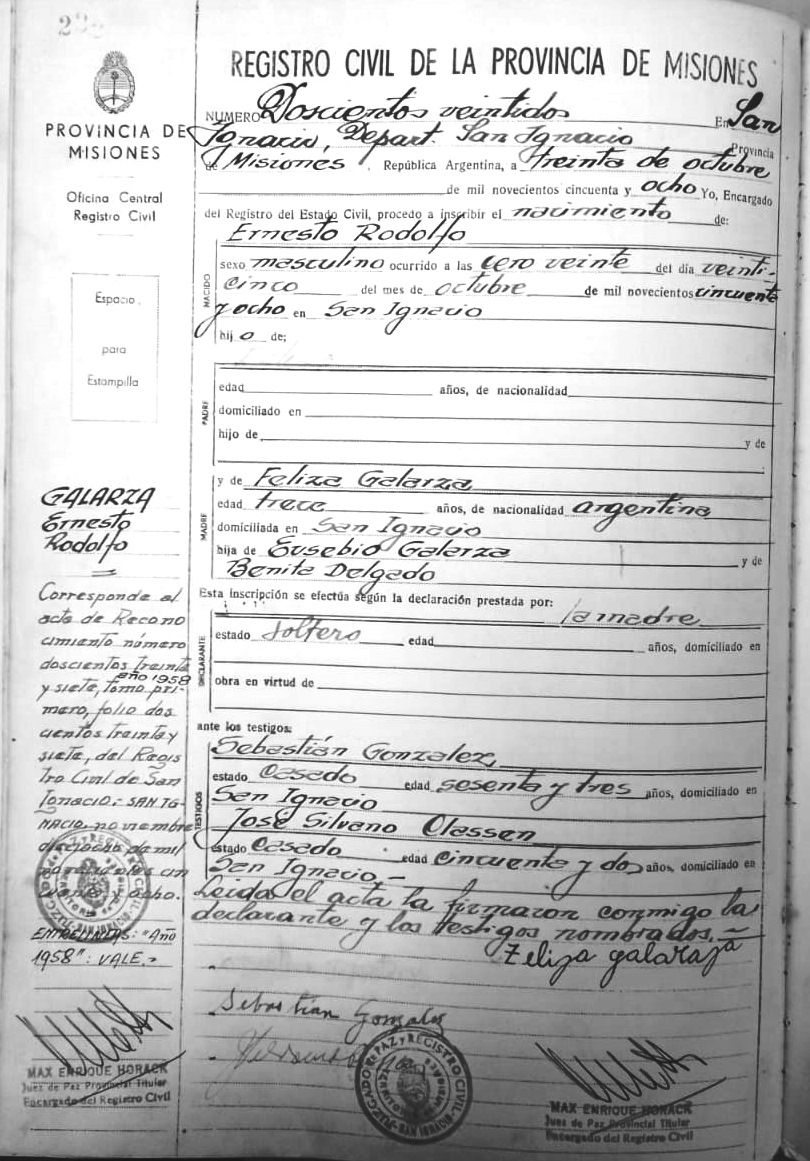 REGISTRO CIVIL DE LA PROVINCIA DE MISIONES
PROVINCIA DE
MISIONES
Oficina Central
Registro Civil
Espacio
para
Estampilla
NUMERO Doscientos veintidos En San
Ignacio, Depart. San Ignacio Provincia
de Misiones, República Argentina, a treinta de octubre
de mil novecientos cincuenta y ocho Yo, Encargado
del Registro del Estado Civil, procedo a inscribir el nacimiento de:
NACIDO
Ernesto Rodolfo
sexo masculino ocurrido a las cero veinte del día veinti-
cinco del mes de octubre de mil novecientos cincuenta
y ocho en San Ignacio
hijo de;
PADRE
edad años, de nacionalidad
domiciliado en
hijo de y de
MADRE
y de Feliza Galarza
edad trece años, de nacionalidad argentina
domiciliada en San Ignacio
hija de Eusebio Galarza y de
Benita Delgado
Esta inscripción se efectúa según la declaración prestada por: la madre
DECLARANTE
estado soltera edad años, domiciliado en
obra en virtud de
ante los testigos:
TESTIGOS
Sebastián Gonzalez,
estado Casado edad sesenta y tres años, domiciliado en
San Ignacio
José Silvano Classen
estado Casado edad cincuenta y dos años, domiciliado en
San Ignacio.-
Leída el acta la firmaron conmigo la
declarante y los testigos nombrados.-
Feliza galaraza
Sebastian Gonzalez
MAX ENRIQUE HORACK
Juez de Paz Provincial Titular
Encargado del Registro Civil
JUZGADO DE PAZ y REGISTRO CIVIL
SAN IGNACIO
GALARZA
Ernesto
Rodolfo
Corresponde al
acta de Recono
cimiento número
doscientos treinta
año 1958
y siete, tomo pri-
mero, folio dos
cientos treinta y
siete, del Regis
tro Civil de San
Ignacio.- SAN IG-
NACIO, noviembre
dieciocho de mil
novecientos cin
cuenta y ocho.
ENTRELINEAS: "Año
1958": VALE.-
MAX ENRIQUE HORACK
Juez de Paz Provincial Titular
Encargado del Registro Civil